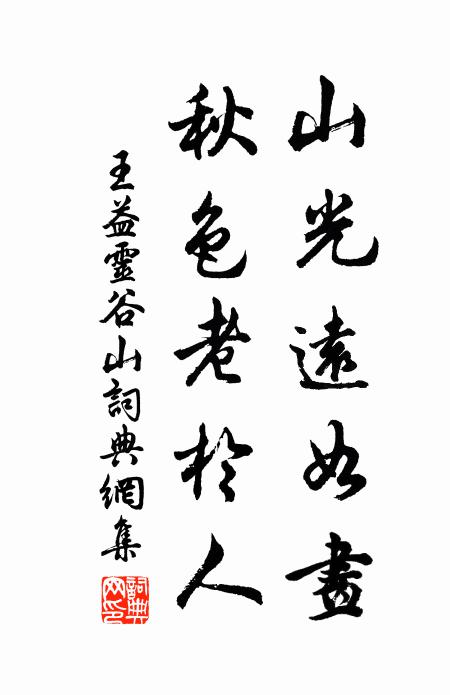 山光遠如畫
秋色老於人
王益靈谷山詞典網集
詞典网印